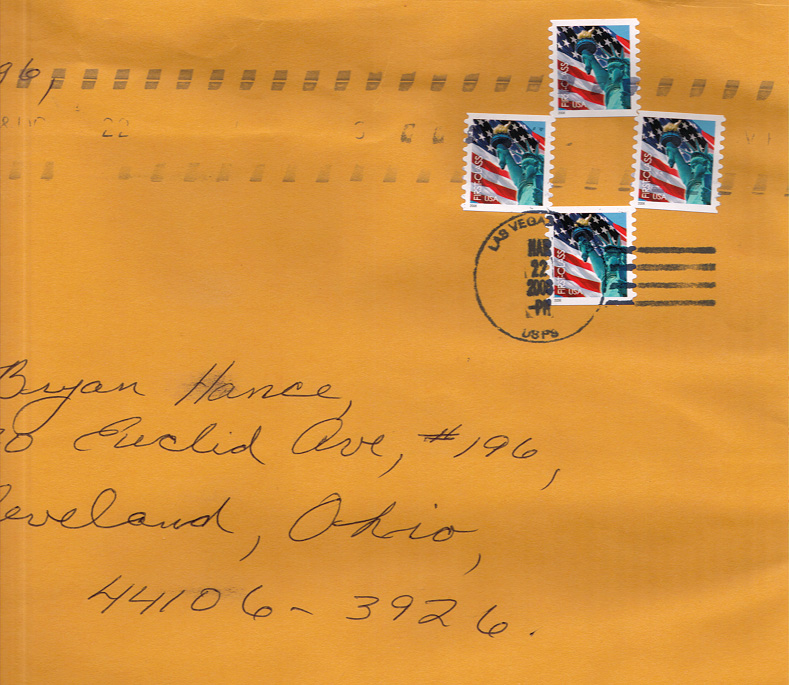 96,
22
FIRST-CLASS
USA
FIRST-CLASS
USA
FIRST-CLASS
USA
FIRST-CLASS
USA
LAS VEGAS
MAR
22
2008
PM
USPS
Bryan Hance,
0 Euclid Ave, #196,
leveland, Ohio,
44106-3926.